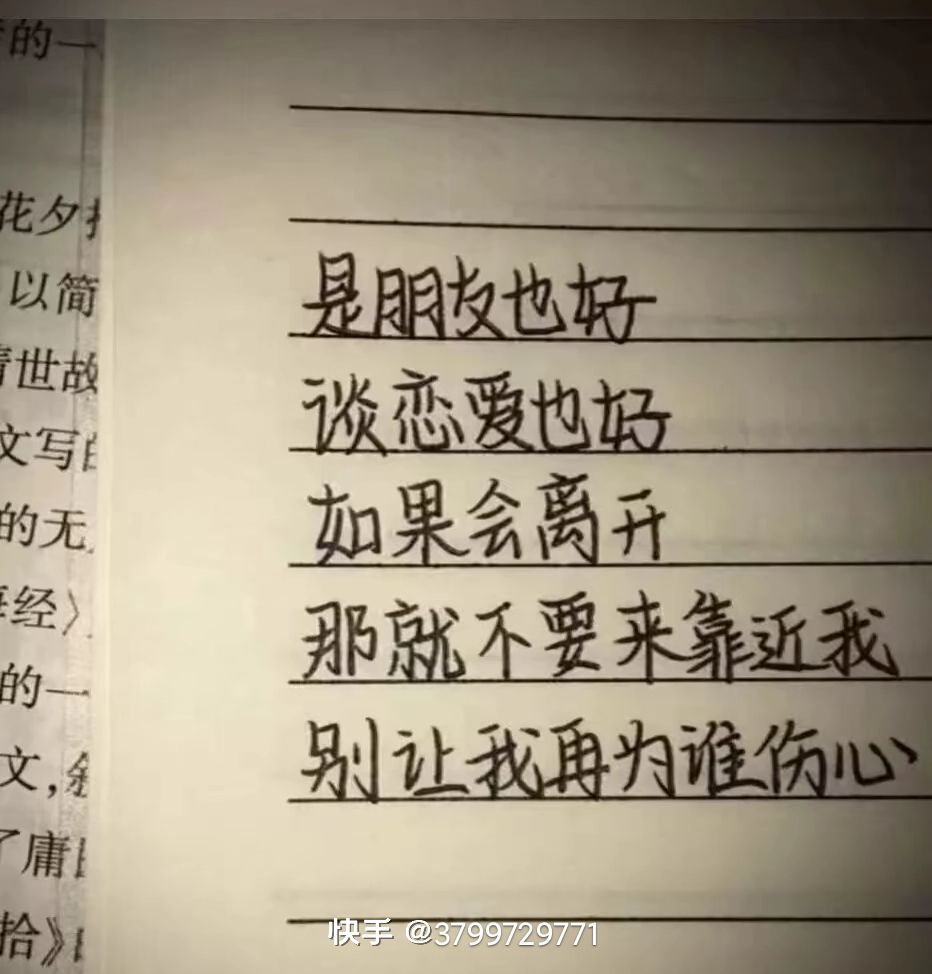 的一
花夕
以简
世故
文写
的无
经》
的一
文，
了庸
拾》
是朋友也好
谈恋爱也好
如果会离开
那就不要来靠近我
别让我再为谁伤心
快手 @3799729771